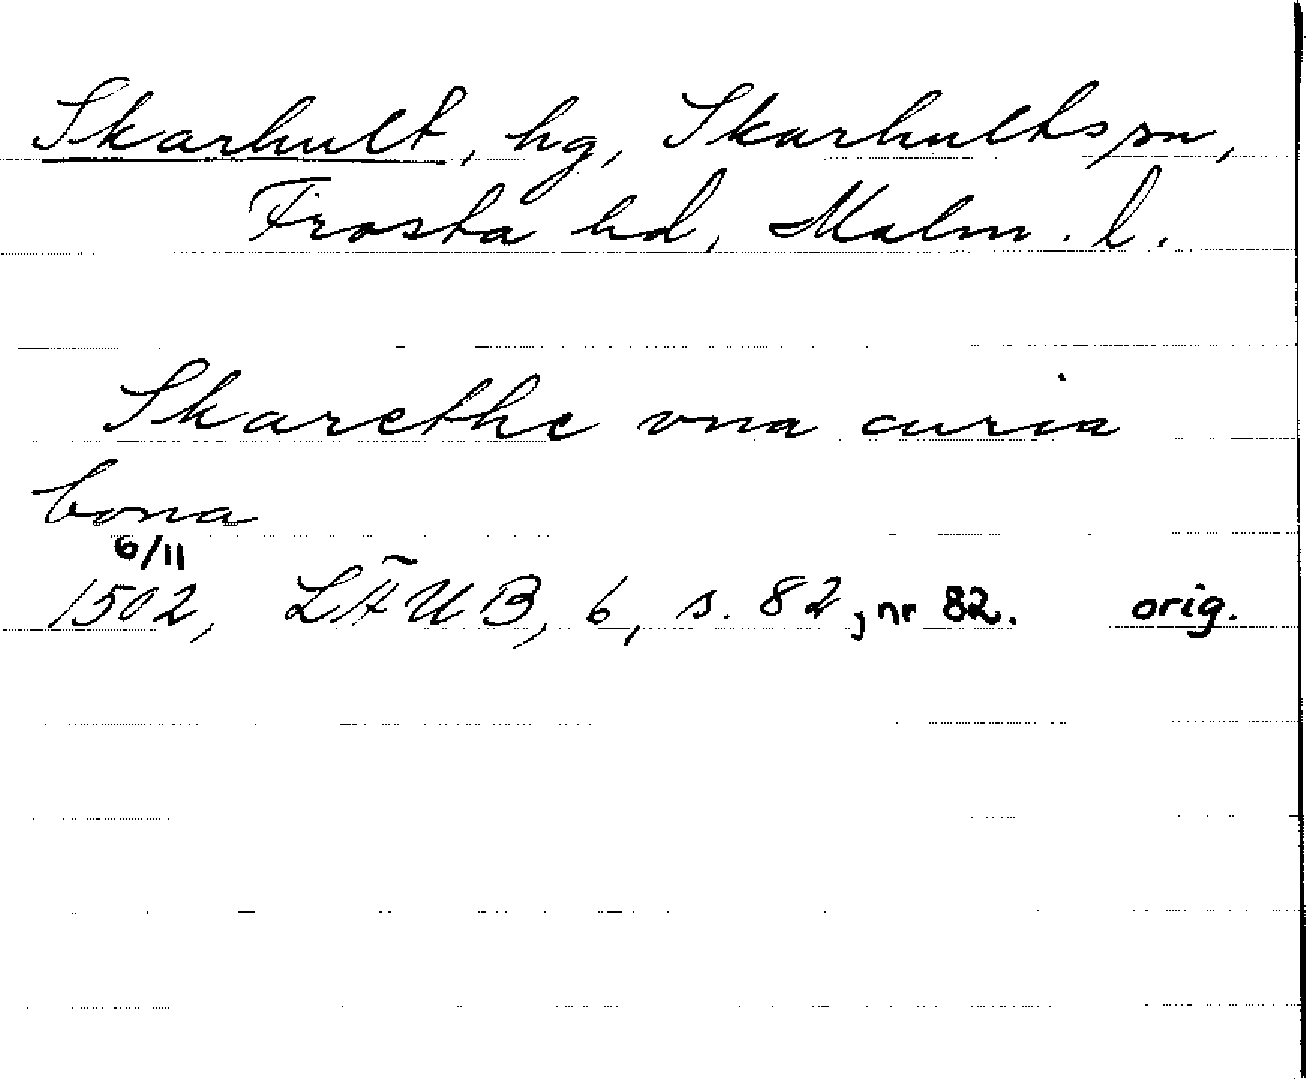 Skarhult, hg, Skarhults sn,
Frosta hd, Malm. l.
Skarethe vna curia
bona
6/11
1502, LÄUB, 6, s. 82, nr 82. orig.